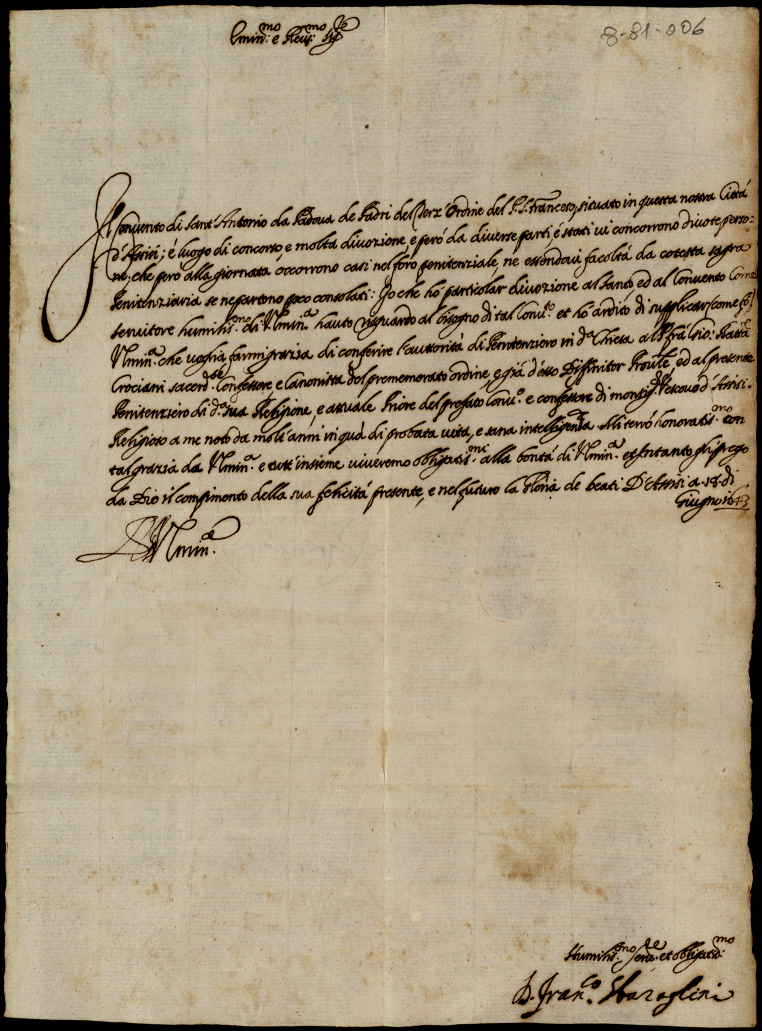 8-81-006
Emin.mo e Reu.mo Sig.re
Il Conuento di Sant'Antonio da Padoua de Padri del Terz'Ordine del P.S. Francesco, situato in questa nostra Città
d'Assisi; è luogo di concorso, e molta diuozione, e però da diuerse parti, e stati ui concorrono diuote perso=
ne, che però alla giornata occorrono casi nel foro penitenziale, ne essendoui facoltà da cotesta sagra
Penitenziaria se ne partono poco consolati: Io che hò particolar diuozione al santo ed al Conuento come
seruitore humiliss.mo di V.Emin.a hauto riguardo al bisogno di tal Conu.to et hò ardito di supplicar, come fò,
V.Emin.a che uoglia farmi grazia di conferire l'auttorità di Penitenziero in d.a Chiesa al P. frà Gio: Batta
Crociani sacerd.te Confessore e Canonista del prememorato ordine, e già d'esso Diffinitor Prou.le, ed al presente
Penitenziero di d.a sua Religione, e attuale Priore del prefato Conu.o e confessore di monsig.r Vescouo d'Assisi.
Religioso a me noto da molt'anni in quà di probata uita, e sana intelligenza. Mi terrò honoratiss.mo con
tal grazia da V.Emin.a e tutt'insieme uiueremo obligatiss.mi alla bontà di V.Emin.a et frà tanto gli prego
da Dio il compimento della sua felicità presente, e nel futuro la Gloria de beati D'Assisi a 18. di
Giugno 1643
D V.Emin.a
Humiliss.mo Ser.re et obligatiss.mo
D. Fran.co Sbaraglini